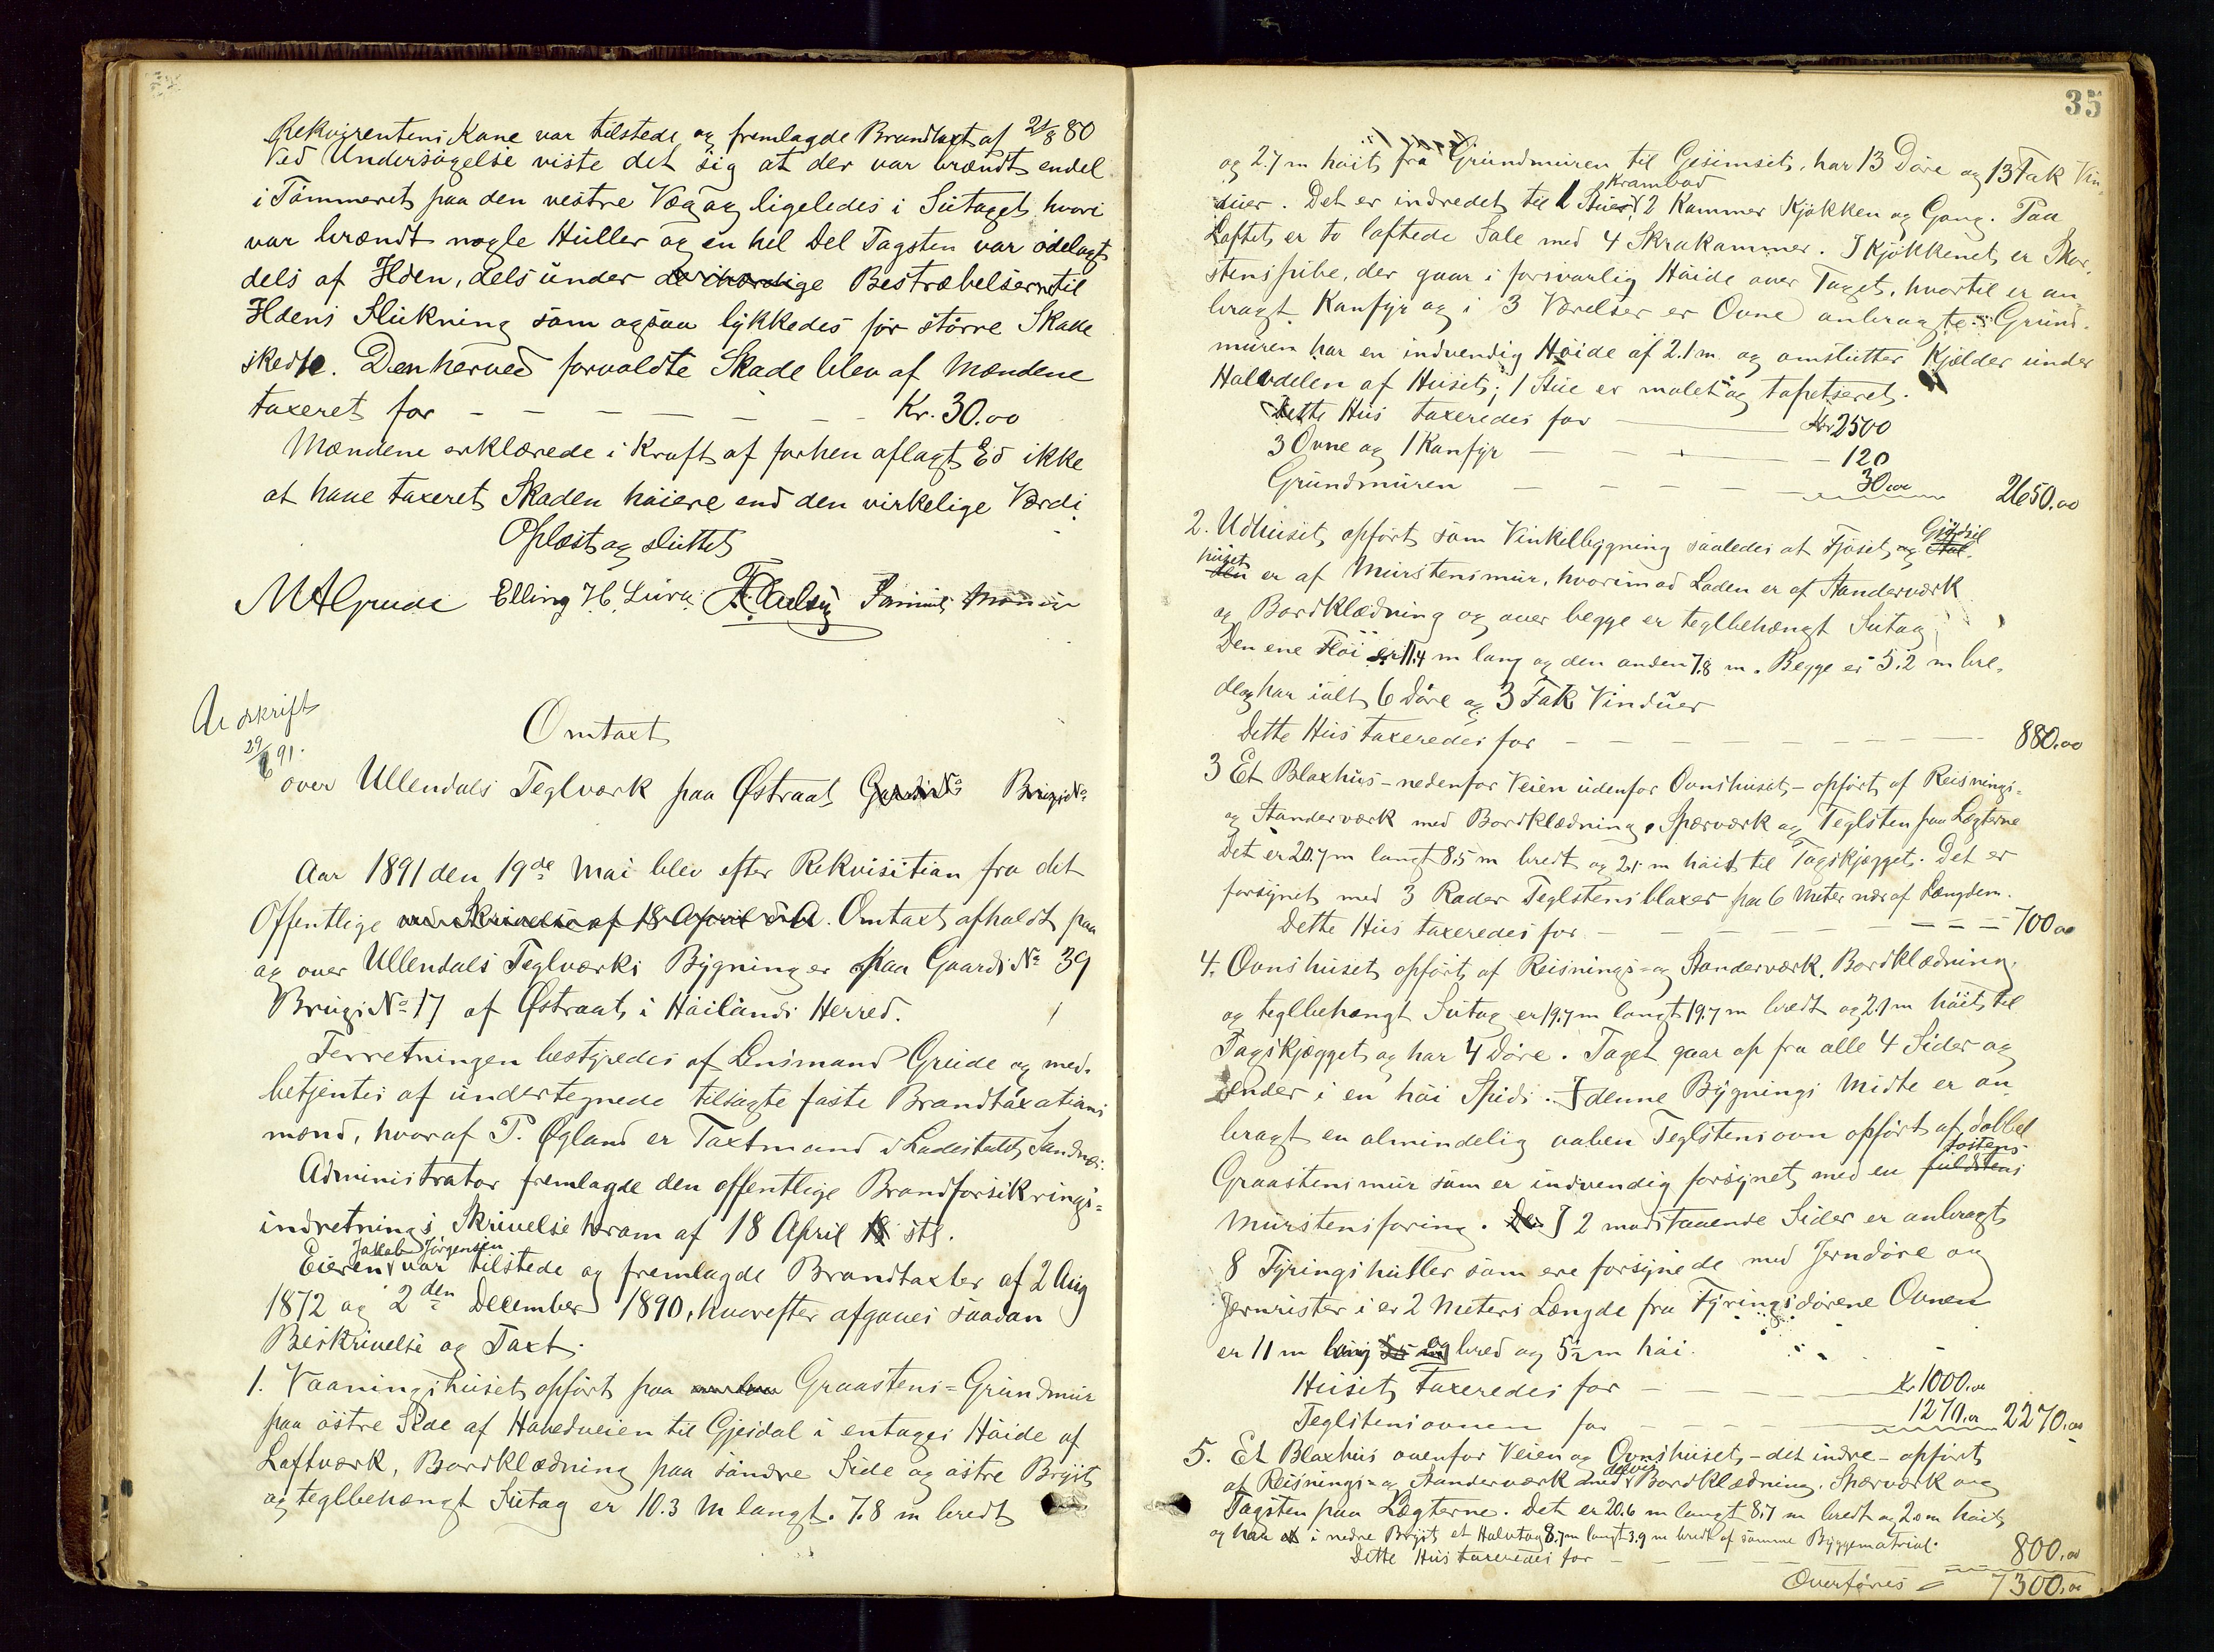 Rekvirentens Kone var tilstede og fremlagde Brandtaxt af 21/8 80
Ved Undersøgelse viste det sig at der var brændt endel
i Tømmeret paa den vestre Væg og ligeledes i Sutaget hvori
var brændt nogle Huller og en hel Del Tagsten var ødelagt
dels af Ilden, dels under de ihærdige Bestræbelser til
Ildens Slukning som ogsaa lykkedes før større Skade
skedte. Den herved forvoldte Skade blev af Mændene
taxeret for - - - - - - Kr. 30.00
Mændene erklærede i Kraft af forhen aflagt Ed ikke
at have taxeret Skaden høiere end den virkelige Værdi.
Oplæst og sluttet
M A Grude Elling H. Lura
Afskrift
29/6 91.
Omtaxt
over Ullendals Teglværk paa Østraat Gaards No Brugs No
Aar 1891 den 19de Mai blev efter Rekvisition fra det
Offentlige ved Skrivelse af 18 April d. A. Omtaxt afholdt paa
og over Ullendals Teglværks Bygninger paa Gaards No 39
Brugs No 17 af Østraat i Høilands Herred.
Forretningen bestyredes af Lensmand Grude og med-
betjentes af undertegnede tilsagte faste Brandtaxations
mænd, hvoraf P. Øgland er Taxtmand i Ladestedet Sandnes.
Administrator fremlagde den offentlige Brandforsikrings-
indretnings Skrivelse herom af 18 April 18 stl.
Jakob Jørgensen
Eieren var tilstede og fremlagde Brandtaxter af 2 Aug
1872 og 2den December 1890, hvorefter afgaves saadan
Beskrivelse og Taxt.
1. Vaaningshuset opført paa Graastens-Grundmur
paa østre Side af Hovedveien til Gjesdal i en tages Høide af
Loftværk, Bordklædning paa søndre Side og østre Bryst
og teglbehængt Sutag er 10.3 m langt. 7.8 m bredt
35
og 2.7 m høit fra Grundmuren til Gesimset, har 13 Døre og 13 Fak Vin-
Krambod
duer. Det er indredet til 1 Stue 2 Kammer Kjøkken og Gang. Paa
Loftet er to loftede Sale med 4 Skrakammer. I Kjøkkenet er Skor-
stenspibe, der gaar i forsvarlig Høide over Taget, hvortil er an-
bragt Komfyr og i 3 Værelser er Ovne anbragte. Grund-
muren har en indvendig Høide af 2.1 m. og omslutter Kjælder under
Halvdelen af Huset; 1 Stue er malet og tapetseret.
Dette Hus taxeredes for Kr 2500
3 Ovne og 1 Komfyr - - - - 120
Grundmuren - - - - 30.00 2650.00
2. Udhuset opført som Vinkelbygning saaledes at Fjøset og Gjødsel
huset er af Murstensmur, hvorimod Laden er af Standerværk
og Bordklædning og over begge er teglbehængt Sutag.
Den ene Fløi er 11.4 m lang og den anden 7.8 m. Begge er 5.2 m bre-
de og har ialt 6 Døre og 3 Fak Vinduer
Dette Hus taxeredes for - - - - - 880.00
3 Et Blaxhus - nedenfor Veien udenfor Ovnshuset - opført af Reisnings-
og Standerværk med Bordklædning, Spærværk og Teglsten paa Lægterne
Det er 20.7 m langt 8.5 m bredt og 2.1 m høit til Tagskjægget. Det er
forsynet med 3 Rader Teglstensblaxer paa 6 Meter nær af Længden.
Dette Hus taxeredes for - - - - - 700.00
4. Ovnshuset opført af Reisnings- og Standerværk, Bordklædning
og teglbehængt Sutag er 19.7 m langt 19.7 m bredt og 2.1 m høit til
Tagskjægget og har 4 Døre. Taget gaar op fra alle 4 Sider og
ender i en høi Spids. I denne Bygnings Midte er an-
bragt en almindelig aaben Teglstensovn opført af dobbel
Graastensmur som er indvendig forsynet med en fuldstens
Murstensforing. I 2 modstaaende Sider er anbragt
8 Fyringshuller som ere forsynede med Jerndøre og
Jernrister i er 2 Meters Længde fra Fyringsdørene Ovnen
er 11 m lang og bred og 5½ m høi.
Huset taxeredes for - - - Kr 1000.00
Teglstensovnen for - - - 1270.00 2270.00
5. Et Blaxhus ovenfor Veien og Ovnshuset - det indre - opført
delvis
af Reisnings- og Standerværk med Bordklædning, Spærværk og
Tagsten paa Lægterne. Det er 20.6 m langt 8.7 m bredt og 2.0 m høit
og har i nedre Bryst et Halvtag 8.7 m langt 3.9 m bredt af samme Byggematrial.
Dette Hus taxeredes for - - - - 800.00
Overføres 7300.00